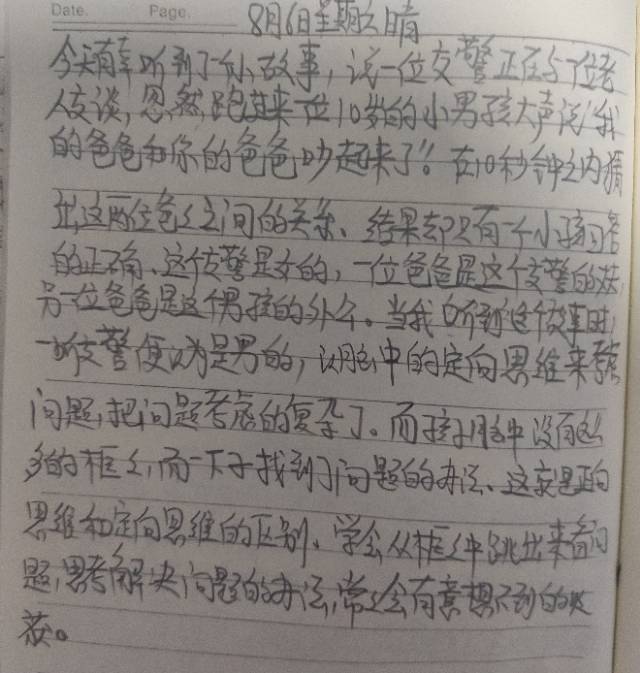 Date. Page.
8月6日星期六晴
今天有幸听到了个小故事,说一位交警正在与一位老
人交谈,忽然跑过来一位10岁的小男孩大声说"我
的爸爸和你的爸爸吵起来了"。在10秒钟之内猜
出这两位爸爸之间的关系、结果却只有一个小孩回答
的正确、这个交警是女的,一位爸爸是这个交警的
另一位爸爸是这个男孩的外公。当我听到这个故事时,
一听交警便以为是男的,以脑中的定向思维来考虑
问题,把问题考虑的复杂了。而孩子脑中没有这么
多的框之,而一下子找到了问题的办法、这就是正向
思维和定向思维的区别、学会从框之中跳出来看问
题,思考解决问题的办法,常之会有意想不到的收
获。